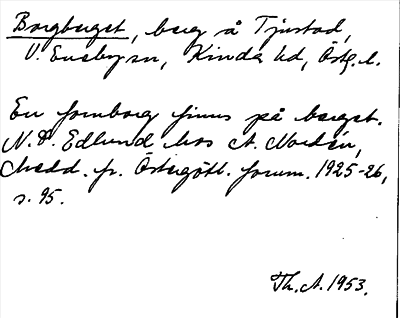 Borgberget, berg å Tjustad,
V. Eneby sn, Kinda hd, Östg. l.
En fornborg finns på berget.
N. P. Edlund hos A. Nordén,
Medd. fr. Östergötl. fornm. 1925-26,
s. 95.
Th. A. 1953.